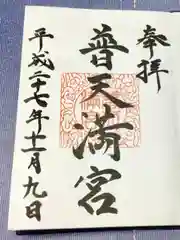 奉拝
普天満宮
平成二十七年十一月九日